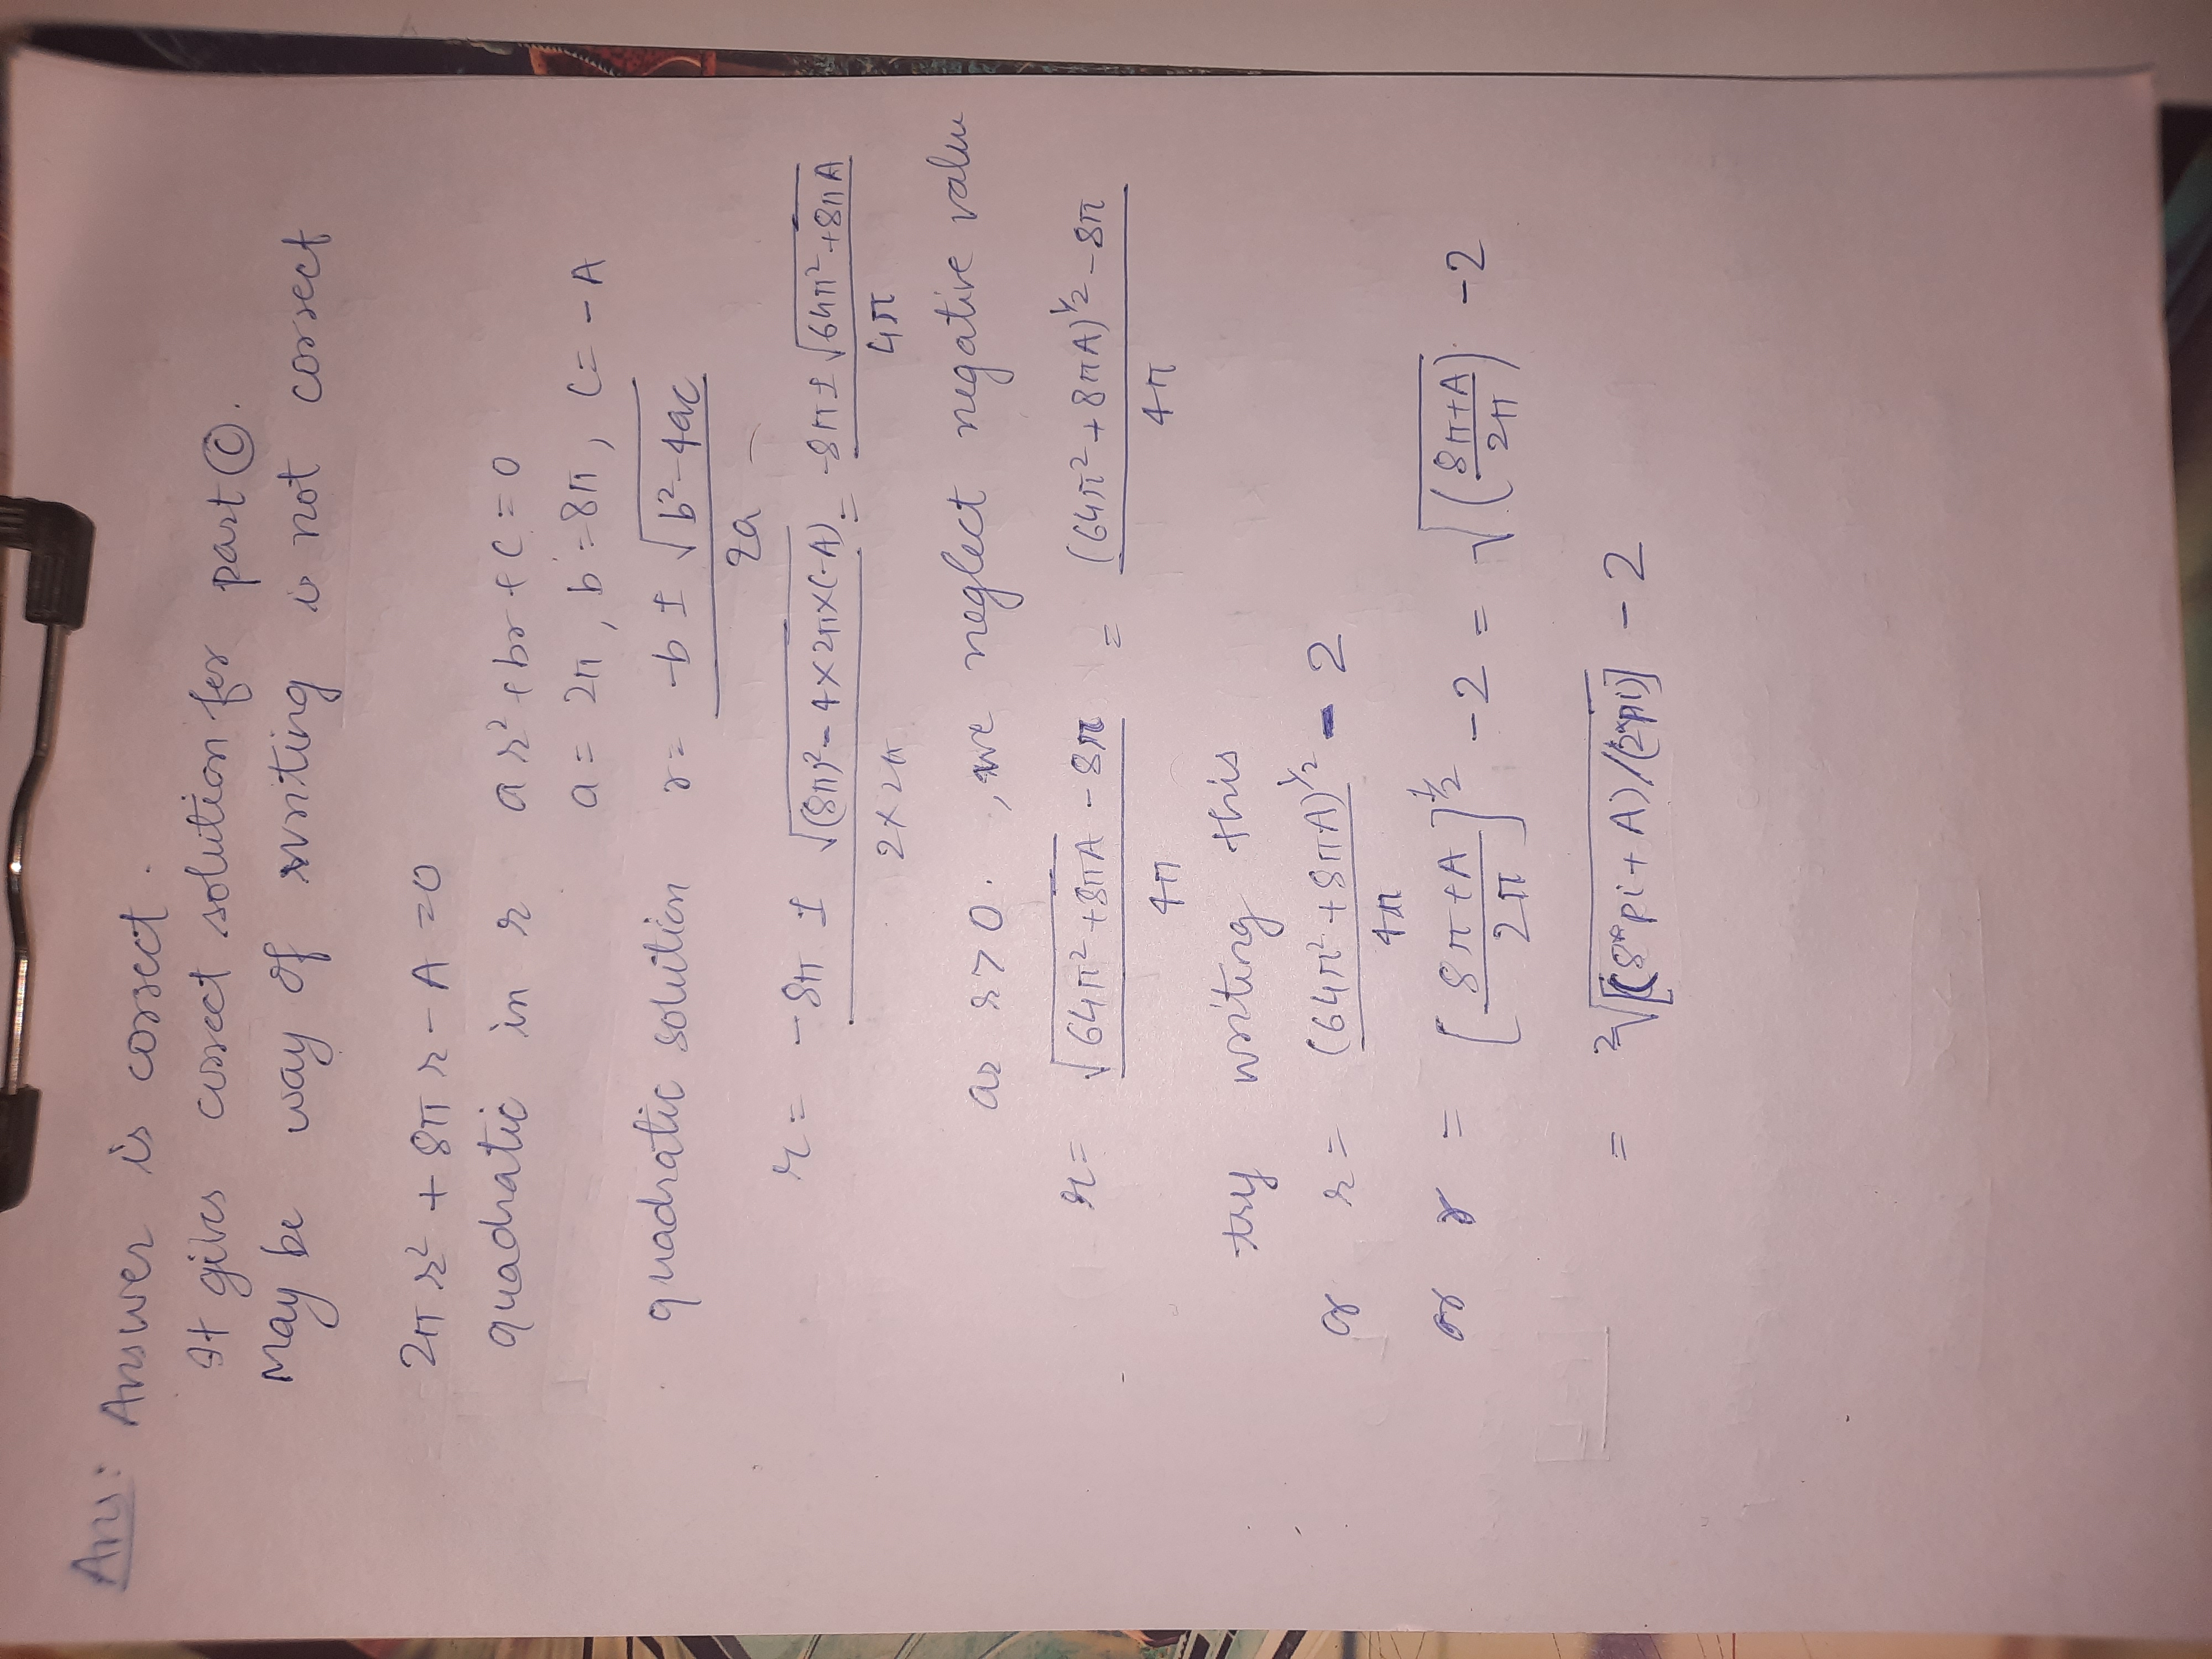 Ans: Answer is correct.
It gives correct solution for part (C).
May be way of writing is not correct
2π r² + 8π r - A = 0
quadratic in r   a r² + br + C = 0
a = 2π, b = 8π, C = -A
quadratic solution   r = -b ± √(b² - 4ac) / 2a
r = -8π ± √((8π)² - 4×2π×(-A)) / 2×2π = -8π ± √(64π² + 8πA) / 4π
as r > 0, we neglect negative value
r = √(64π² + 8πA) - 8π / 4π = (64π² + 8πA)^½ - 8π / 4π
try writing this
or r = (64π² + 8πA)^½ / 4π - 2
or r = [8π + A / 2π]^½ - 2 = √(8π + A / 2π) - 2
= ²√[(8*pi + A)/(2*pi)] - 2